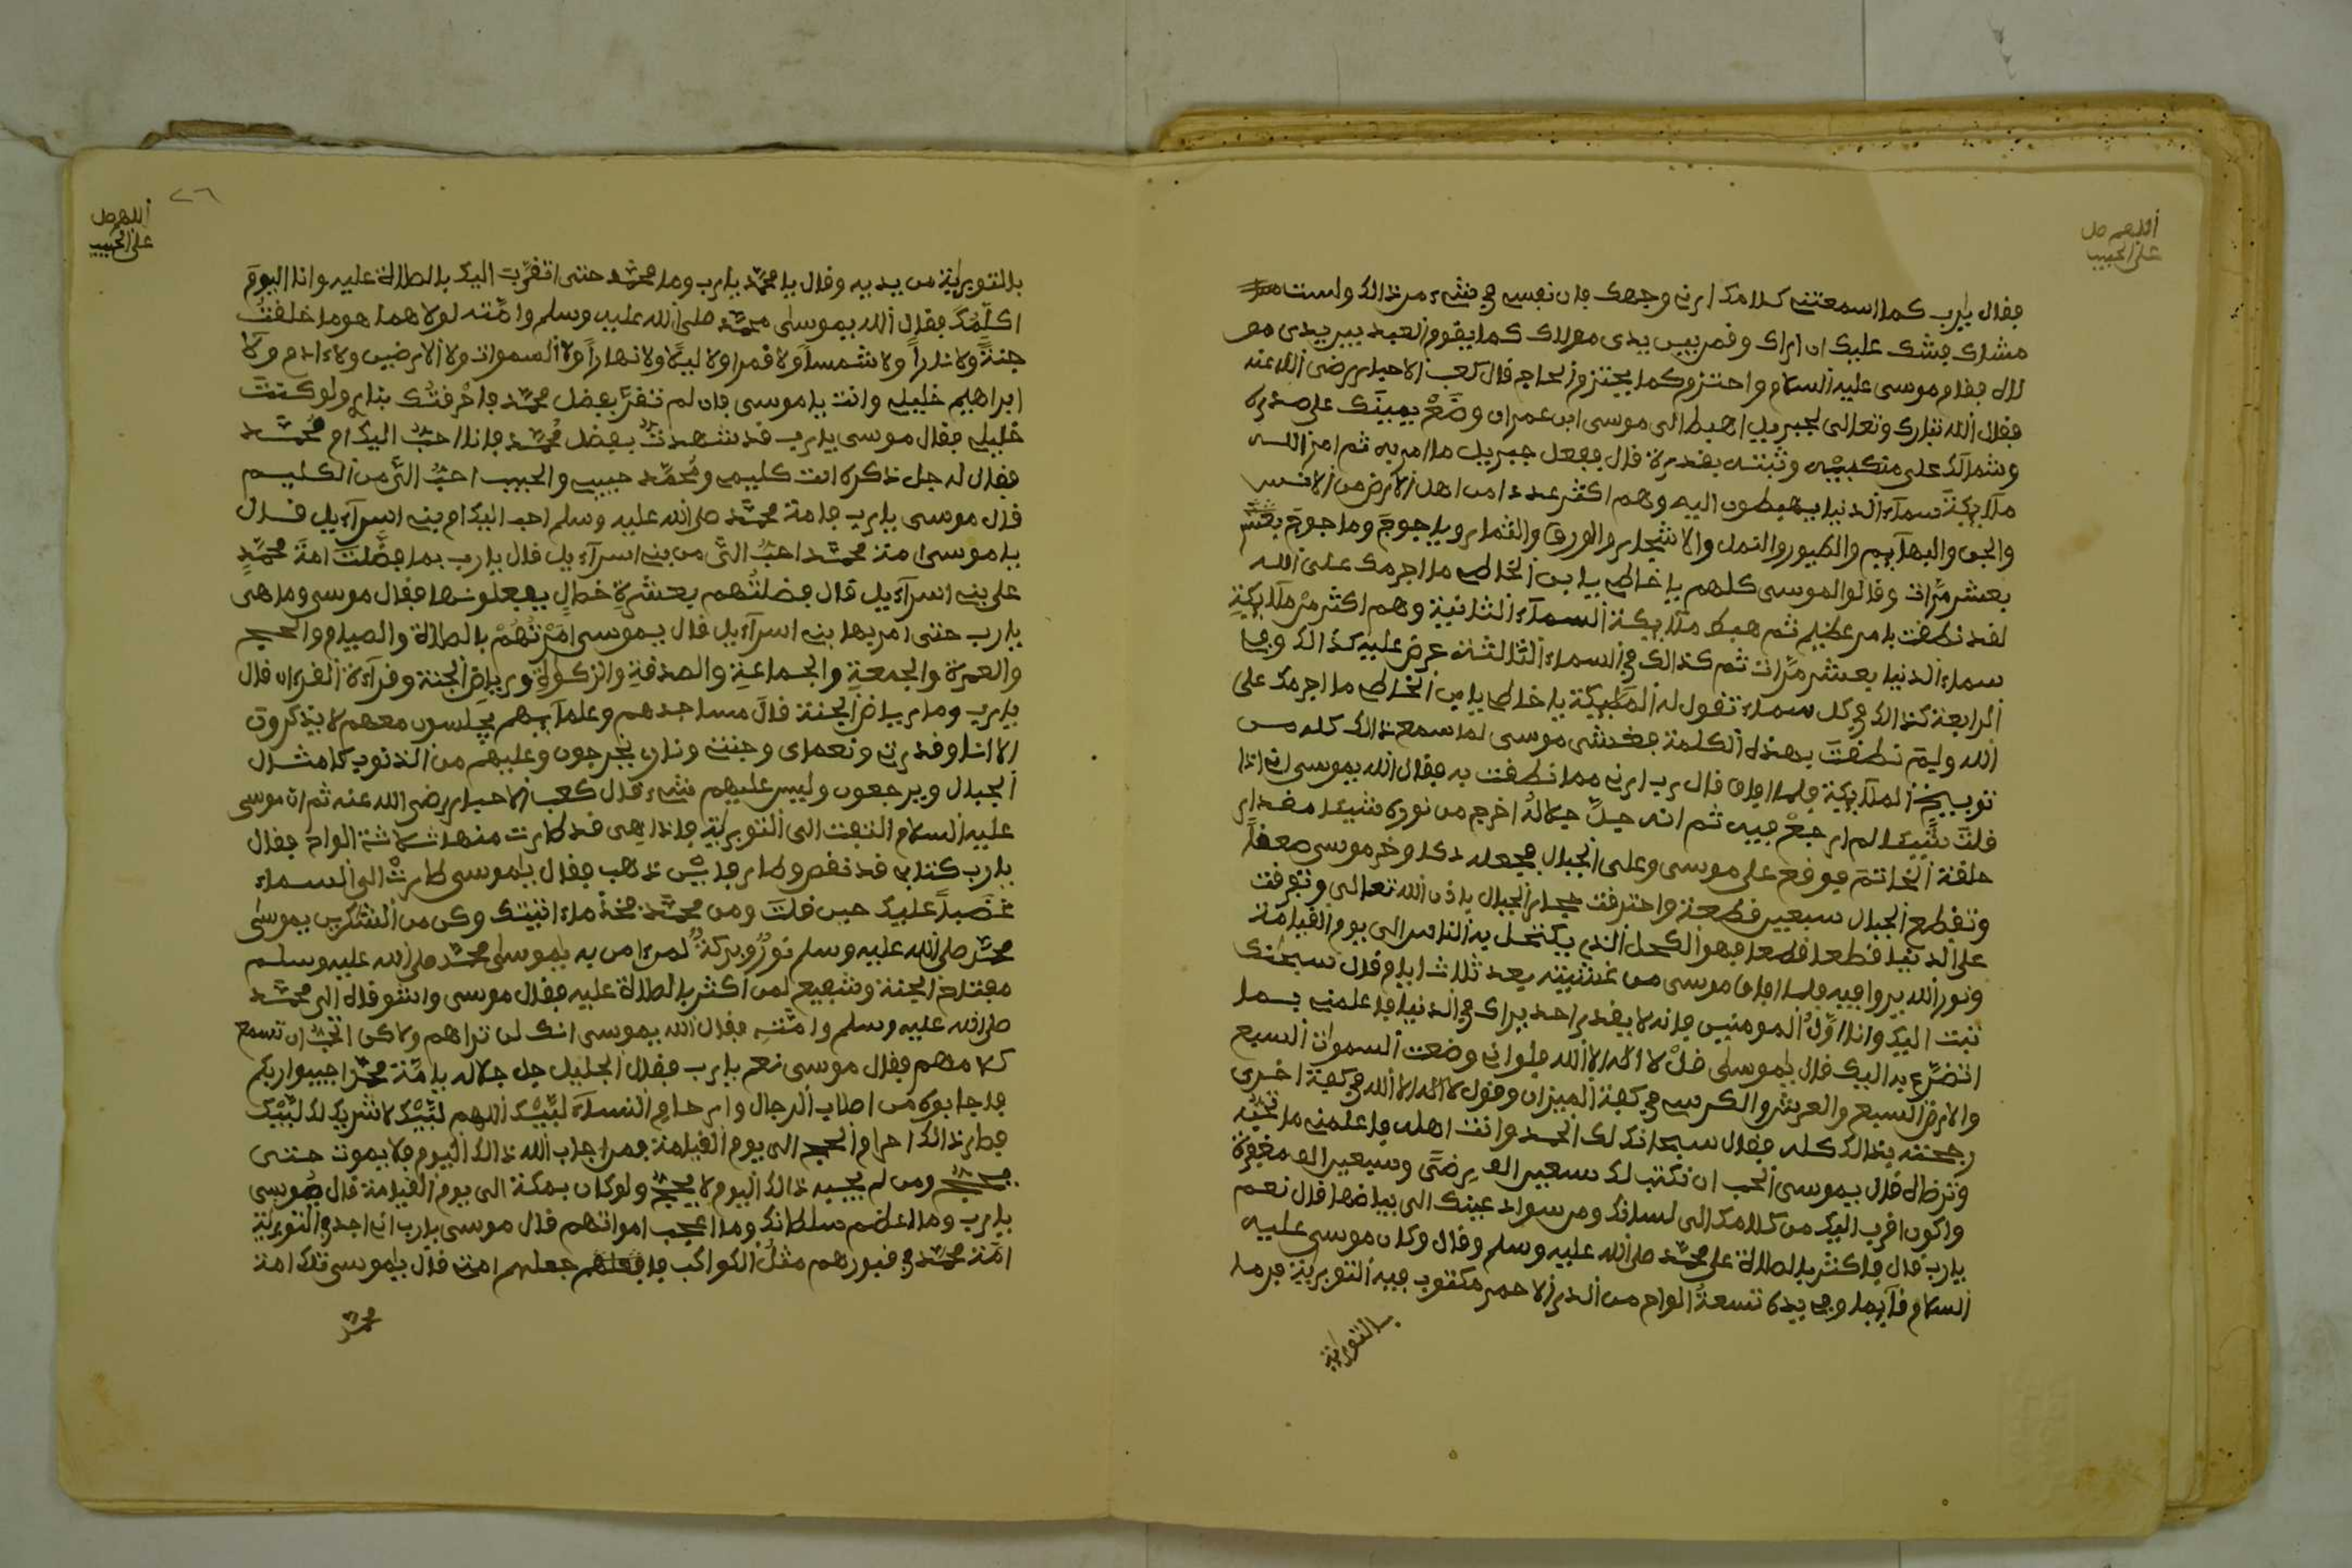 اللهم صل
على الحبيب
فقال يارب كما اسمعتني كلامك ارني وجهك فان نفسي في شيء من ذالك ولست
مشارك فشك عليك ان اراك وقم بين يدي مولاك كما يقوم العبد بين يدي
فقام موسى عليه السلام واحتزم كما يحتزم الحاج قال كعب الاحبار رضى الله عنه
فقال الله تبارك وتعالى لجبريل اهبط الى موسى ابن عمران وضع يمينك على صدره
وشمالك على منكبيه وثبته بقدرة قال ففعل جبريل ما امر به ثم امر الله
ملآئكة سمآء الدنيا يهبطون اليه وهم اكثر عددا من اهل الارض من الانس
والجن والبهآئم والطيور والنمل والاشجار والورق والثمار وياجوج وماجوج
بعشر مرّات وقالوا لموسى كلهم يا خاطي يا بن الخاطي ما اجرمك على الله
لقد نطقت بامر عظيم ثم هبط ملآئكة السمآء الثانية وهم اكثر من ملآئكة
سماء الدنيا بعشر مرّات ثم كذالك في السماء الثالثة عرض عليه كذالك وفي
الرابعة كذالك في كل سماء تقول له الملآئكة يا خاطي يا بن الخاطي ما اجرمك على
الله وليم نطقت بهذه الكلمة فغشي موسى لما سمع ذالك كله من
توبيخ الملآئكة فلما افاق قال رب ارني مما نطقت به فقال الله يموسى اني اذا
قلت شيئا لم ارجع فيه ثم انه جلّ جلاله اخرج من نوره شيئا مقدار
حلقة الخاتم فوقع على موسى وعلى الجبال فجعله دكا وخر موسى صعقاً
وتقطع الجبال سبعين قطعة واحترقت حجار الجبال باذن الله تعالى وتفرقت
على الدنيا قطعا قطعا فهو الكحل الذي يكتحل به الناس الى يوم القيامة
ونور الله بيرا فيه فلما افاق موسى من غشيته بعد ثلاث ايام قال سبحنك
تبت اليك وانا اوّل المومنين فانه لا يقدر احد يراك في الدنيا فاعلمني بما
اتضرّع به اليك قال يموسى قل لا اله الا الله فلو اني وضعت السموات السبع
والارض السبع والعرش والكرسي في كفة الميزان وقول لا اله الا الله في كفة اخرى
رجحته بذالك كله فقال سبحانك لك الحمد وانت اهله فاعلمني ما تحبّه
وترضاه قال يموسى اتحب ان نكتب لك سبعين الف رضىً وسبعين الف مغفرة
واكون اقرب اليك من كلامك الى لسانك ومن سواد عينك الى بياضها قال نعم
يارب قال فاكثر بالصلاة على محمّد صلى الله عليه وسلم وقال وكان موسى عليه
السلام قآئما وفي يده تسعة الواح من الدر الاحمر مكتوب فيه التورية فرما
بالتورية
٢٦
اللهم صل
على الحبيب
بالتورية من يديه وقال يا محمّد يارب وما محمّد حتى اتقرّبَ اليك بالصلاة عليه وانا اليوم
اكلّمك فقال الله يموسى محمّد صلى الله عليه وسلم وامّته لولا هما هو ما خلقتُ
جنةً ولا ناراً ولا شمساً ولا قمرا ولا ليلًا ولا نهاراً ولا السموات ولا الارضين ولا ءادم ولا
ابراهيم خليلي وانت ياموسى فان لم تقرّ بفضل محمّد فاحرقتُك بنار ولو كنت
خليلي فقال موسى يارب قد شهدتُ بفضل محمّد فانا احبّ اليك ام محمّد
فقال له جل ذكره انت كليمي ومحمّد حبيبي والحبيب احبّ الىّ من الكليم
قال موسى يارب فامة محمّد صلى الله عليه وسلم احب اليك ام بني اسرآءيل قال
ياموسى امة محمّد احبّ الىّ من بني اسرآءيل قال يارب بما فضّلت امة محمّدٍ
على بني اسرآءيل قال فضلتُهم بعشرةِ خصالٍ يفعلونها فقال موسى وما هي
يارب حتى امر بها بني اسرآءيل قال يموسى امَرْتُهُمْ بالصلاة والصيام والحج
والعمرة والجمعةِ والجماعةِ والصدقةِ والزكوةِ ورياض الجنة وقرآءة القرءان قال
يارب وما رياض الجنة قال مساجدهم وعلمآئهم يجلسون معهم لا يذكرون
الا انا وقدرتي ونعماى وجنتي وناري يخرجون وعليهم من الذنوب كامثال
الجبال ويرجعون وليس عليهم شيء قال كعب الاحبار رضى الله عنه ثم ان موسى
عليه السلام التفت الى التورية فاذا هي قد طارت منها ثلاثة الواح فقال
يارب كتابي قد نقص وطار فايْن ذهب فقال ياموسى طارتْ الى السماء
غضباً عليك حين قلتَ ومن محمّد فخذ ماءاتيتك وكن من الشاكرين يموسى
محمّد صلى الله عليه وسلم نورٌ وبركةٌ لمن ءامن به ياموسى محمّد صلى الله عليه وسلم
مفتاح الجنة وشفيع لمن اكثر بالصلاة عليه فقال موسى واشوقاه الى محمّد
صلى الله عليه وسلم وامّتهِ فقال الله يموسى انك لن تراهم ولاكن اتحبّ ان تسمع
كلامهم فقال موسى نعم يارب فقال الجليل جل جلاله يامّة محمّد اجيبوا ربكم
فاجابوه من اصلاب الرجال وارحام النسآء لبّيْك اللهم لبّيْك لا شريك لك لبّيْك
فصار ذالك احرام الحج الى يوم القيامة فمن اجاب الله ذالك اليوم فلا يموت حتى
يحجّ ومن لم يجيبه ذالك اليوم لا يحجّ ولو كان بمكة الى يوم القيامة قال موسى
يارب وما اعظم سلطانك وما اعجب امواتهم قال موسى يارب اني اجد في التورية
امّة محمّد في قبورهم مثلُ الكواكب جعلهم امتي قال ياموسى تلك امة
محمّد